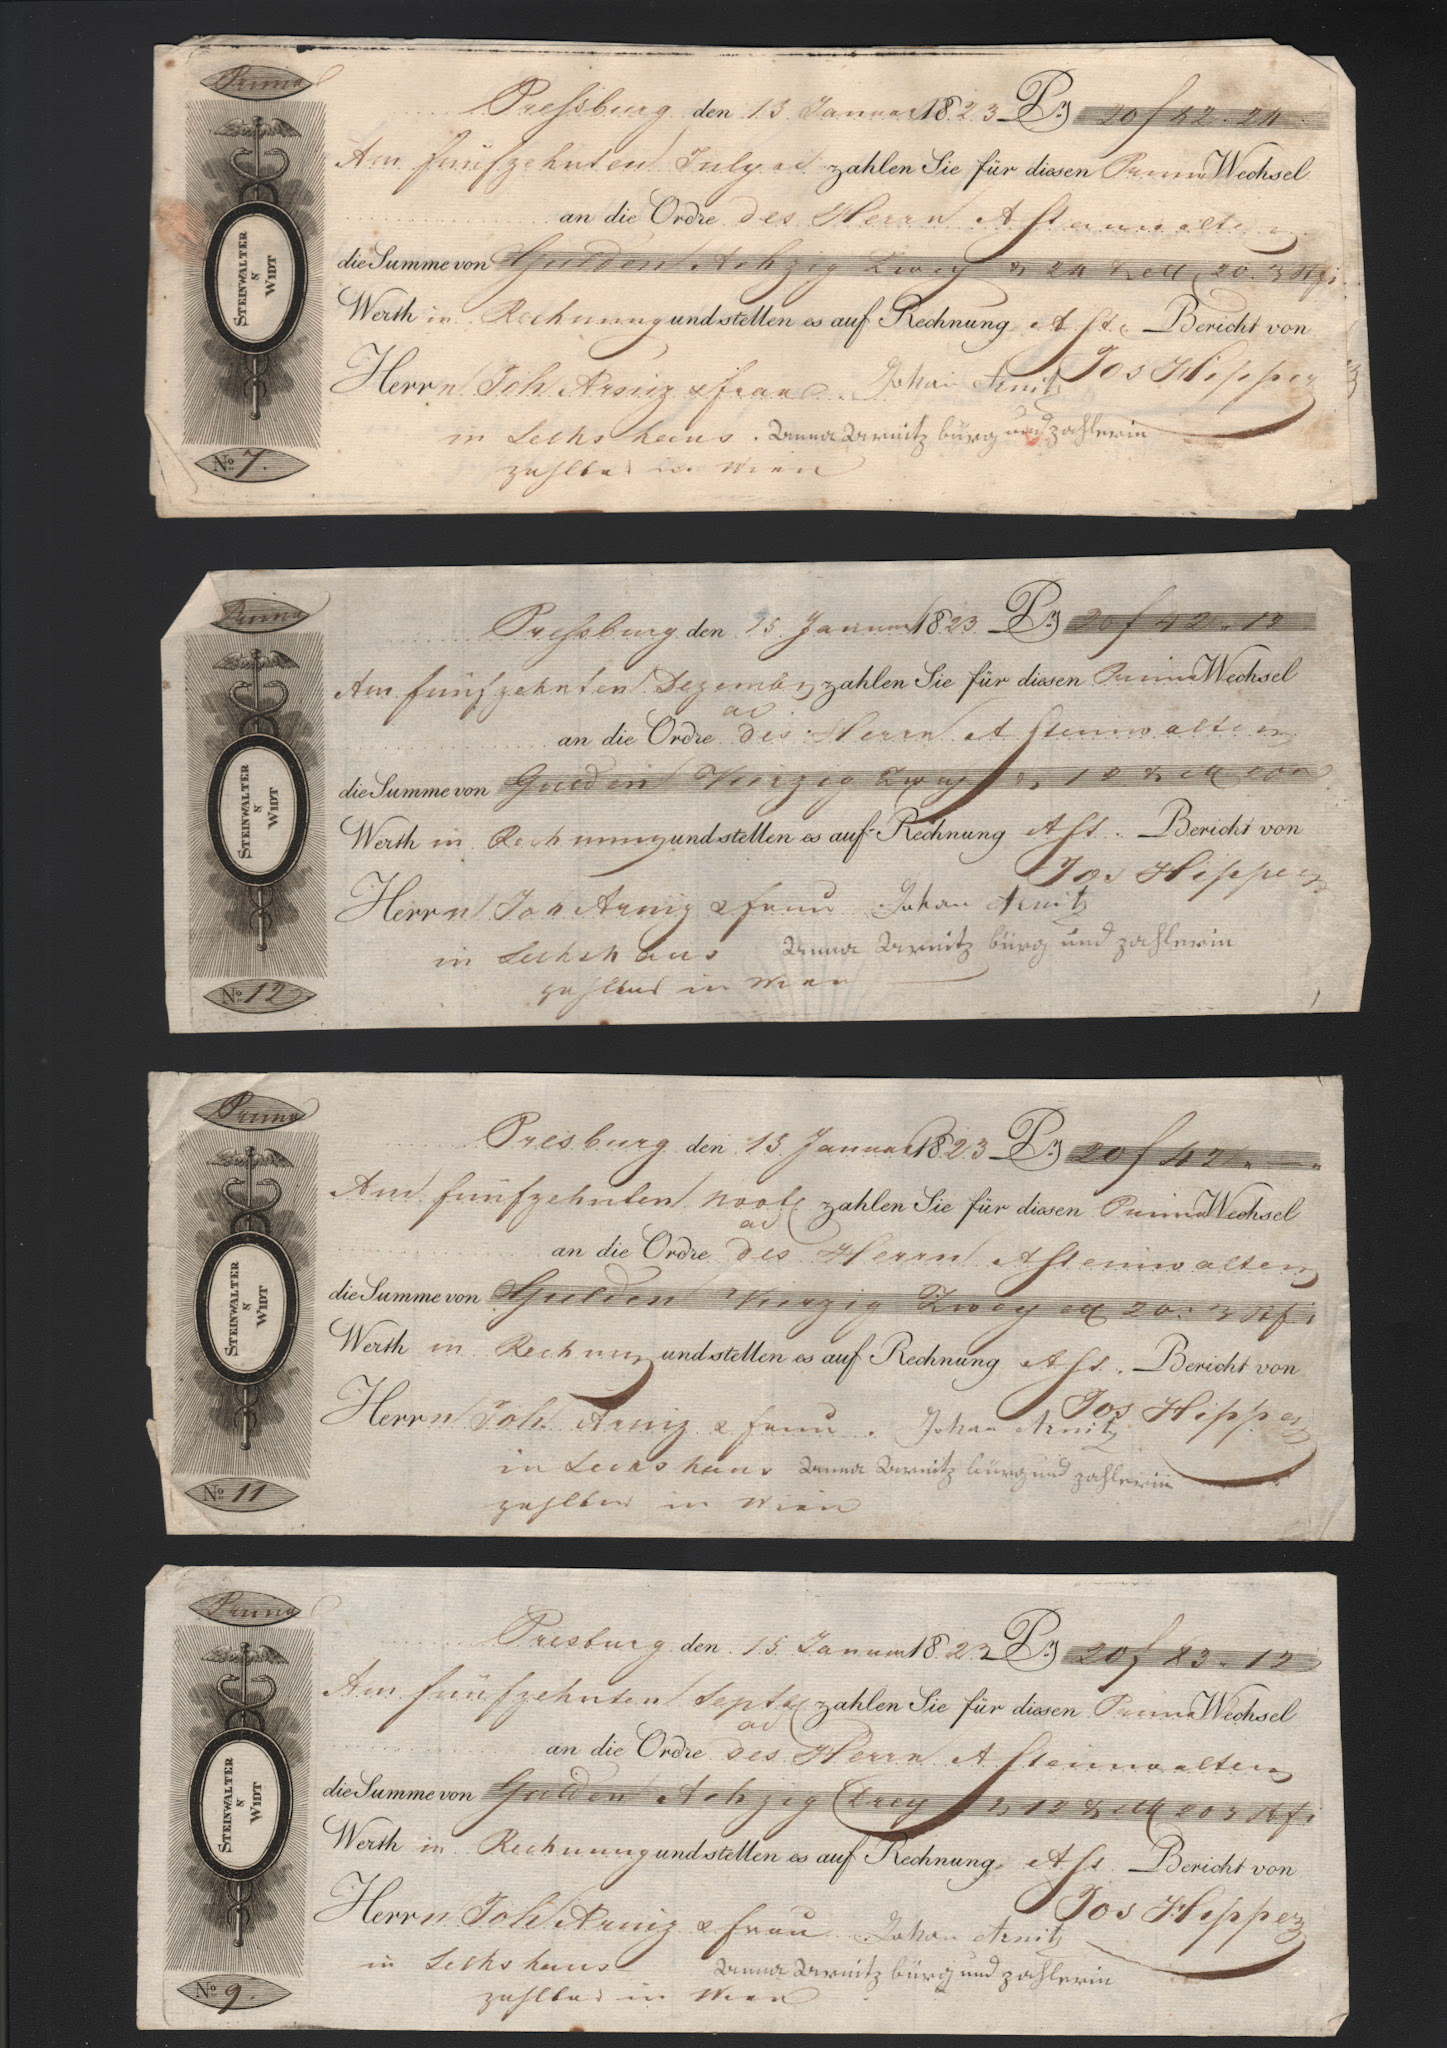 Prima
Pressburg den 15 Januar 1823 Pr 20 f 82. 24
Am fünfzehnten July ad zahlen Sie für diesen Prima Wechsel
an die Ordre des Herrn A Steinwalter
die Summe von Gulden Achzig Zwey 24
Werth in Rechnung und stellen es auf Rechnung Bericht von
Herrn Joh Arniz & frau Johan Arnitz Jos Hipper
in Sechshaus. Anna Arnitz bürg und zahlerin
zahlbar in Wien
STEINWALTER
&
WIDT
No. 7.
Prima
Pressburg den 15 Januar 1823 Pr 20 f 42. 12
Am fünfzehnten Dezember zahlen Sie für diesen Prima Wechsel
ad
an die Ordre des Herrn A Steinwalter
die Summe von Gulden Vierzig Zwey
Werth in Rechnung und stellen es auf Rechnung Bericht von
Jos Hipper
Herrn Joh Arniz & frau Johan Arnitz
in Sechshaus Anna Arnitz bürg und zahlerin
zahlbar in Wien
STEINWALTER
&
WIDT
No. 12
Prima
Presburg den 15 Januar 1823 Pr 20 f 42
Am fünfzehnten zahlen Sie für diesen Prima Wechsel
ad
an die Ordre des Herrn A Steinwalter
die Summe von Gulden Vierzig Zwey
Werth in Rechnung und stellen es auf Rechnung Bericht von
Herrn Joh Arniz & frau. Johan Arnitz Jos Hipper
in Sechshaus Anna Arnitz bürg und zahlerin
zahlbar in Wien
STEINWALTER
&
WIDT
No. 11
Prima
Presburg den 15 Januar 1823 Pr 20 f 83. 12
Am fünfzehnten Septb zahlen Sie für diesen Prima Wechsel
ad
an die Ordre des Herrn A Steinwalter
die Summe von Gulden Achzig Drey 12
Werth in Rechnung und stellen es auf Rechnung Bericht von
Jos Hipper
Herrn Joh Arniz & frau Johan Arnitz
in Sechshaus Anna Arnitz bürg und zahlerin
zahlbar in Wien
STEINWALTER
&
WIDT
No. 9.